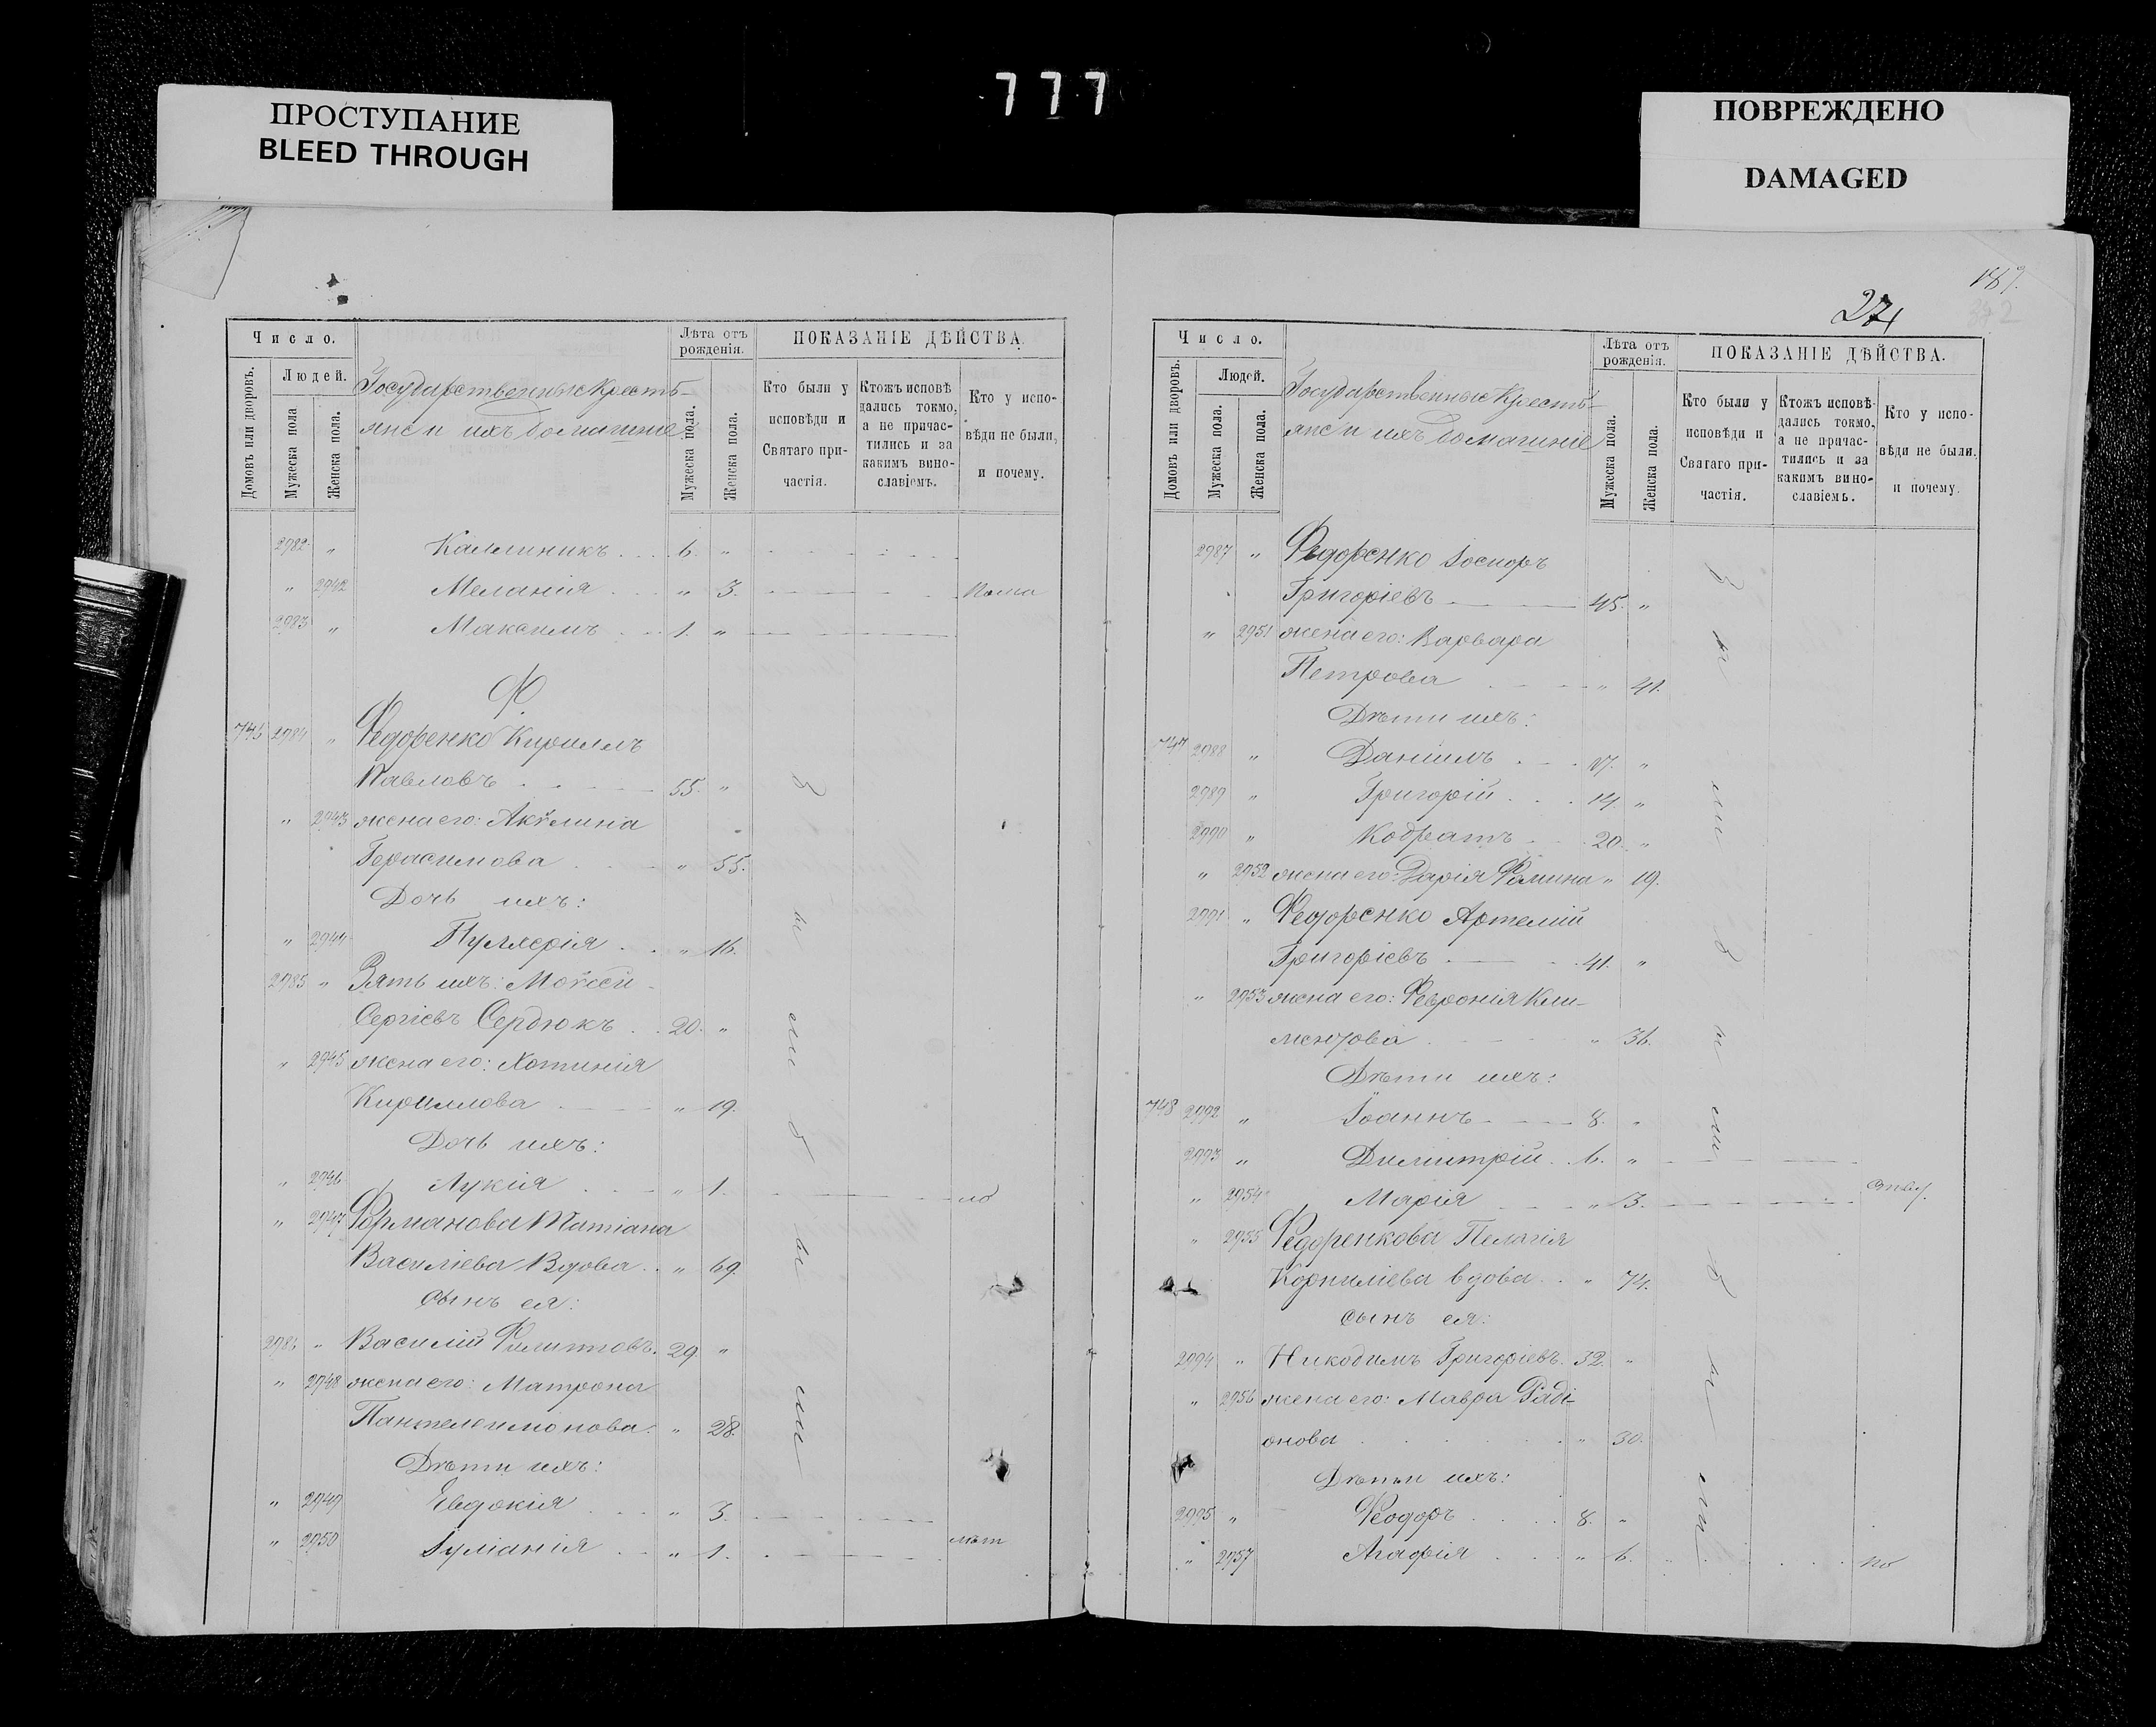 777
ПРОСТУПАНИЕ
BLEED THROUGH
ПОВРЕЖДЕНО
DAMAGED
Число.
Домовъ или дворовъ.
Людей.
Мужеска пола
Женска пола.
Государственные Кресть-
яне и ихъ домашніе
Лѣта отъ рожденія.
Мужеска пола.
Женска пола.
ПОКАЗАНІЕ ДѢЙСТВА.
Кто были у исповѣди и Святаго при-частія.
Ктожъ исповѣ дались токмо, а не причас-тились и за какимъ вино-славіемъ.
Кто у испо-вѣди не были, и почему.
2982 " Каллиникъ 6. "
" 2942 Меланія " 3.
2983 " Максимъ 1. "
Ф.
746 2984 " Федоренко Кириллъ
Павловъ 55. "
" 2943 жена его: Акѵлина
Герасимова " 55.
Дочь ихъ:
" 2944 Пулхерія " 16.
2985 " Зять ихъ: Моѵсей
Сергіевъ Сердюкъ 20. "
" 2945 жена его: Хотинія
Кириллова " 19.
Дочь ихъ:
" 2946 Лукія " 1.
" 2947 Форманова Татіана
Василіева Вдова " 69.
сынъ ея:
2986 " Василій Филиповъ. 29. "
" 2948 жена его: Матрона
Пантелеимонова " 28.
Дѣти ихъ:
" 2949 Евдокія " 3.
" 2950 Іуліанія " 1.
27
Число.
Домовъ или дворовъ.
Людей.
Мужеска пола.
Женска пола.
Государственные Кресть-
яне и ихъ домашніе
Лѣта отъ рожденія.
Мужеска пола.
Женска пола.
ПОКАЗАНІЕ ДѢЙСТВА.
Кто были у исповѣди и Святаго при-частія.
Ктожъ исповѣ-дались токмо, а не причас-тились и за какимъ вино-славіемъ.
Кто у испо-вѣди не были. и почему.
2987 " Федоренко Іосифъ
Григоріевъ 45. "
" 2951 жена его: Варвара
Петрова " 41.
Дѣти ихъ:
747 2988 " Даніилъ 17. "
2989 " Григорій 14. "
2990 " Кодратъ 20. "
" 2952 жена его: Дарія Фомина " 19.
2991 " Федоренко Артемій
Григоріевъ 41. "
" 2953 жена его: Февронія Кли-
ментова " 36.
Дѣти ихъ:
748 2992 " Іоаннъ 8. "
2993 " Димитрій 6. "
" 2954 Марія " 3.
" 2955 Федоренкова Пелагія
Корниліева вдова " 74.
сынъ ея:
2994 " Никодимъ Григоріевъ. 32. "
" 2956 жена его: Мавра Раді-
онова " 30.
Дѣти ихъ:
2995 " Феодоръ 8. "
" 2957 Агафія " 6.